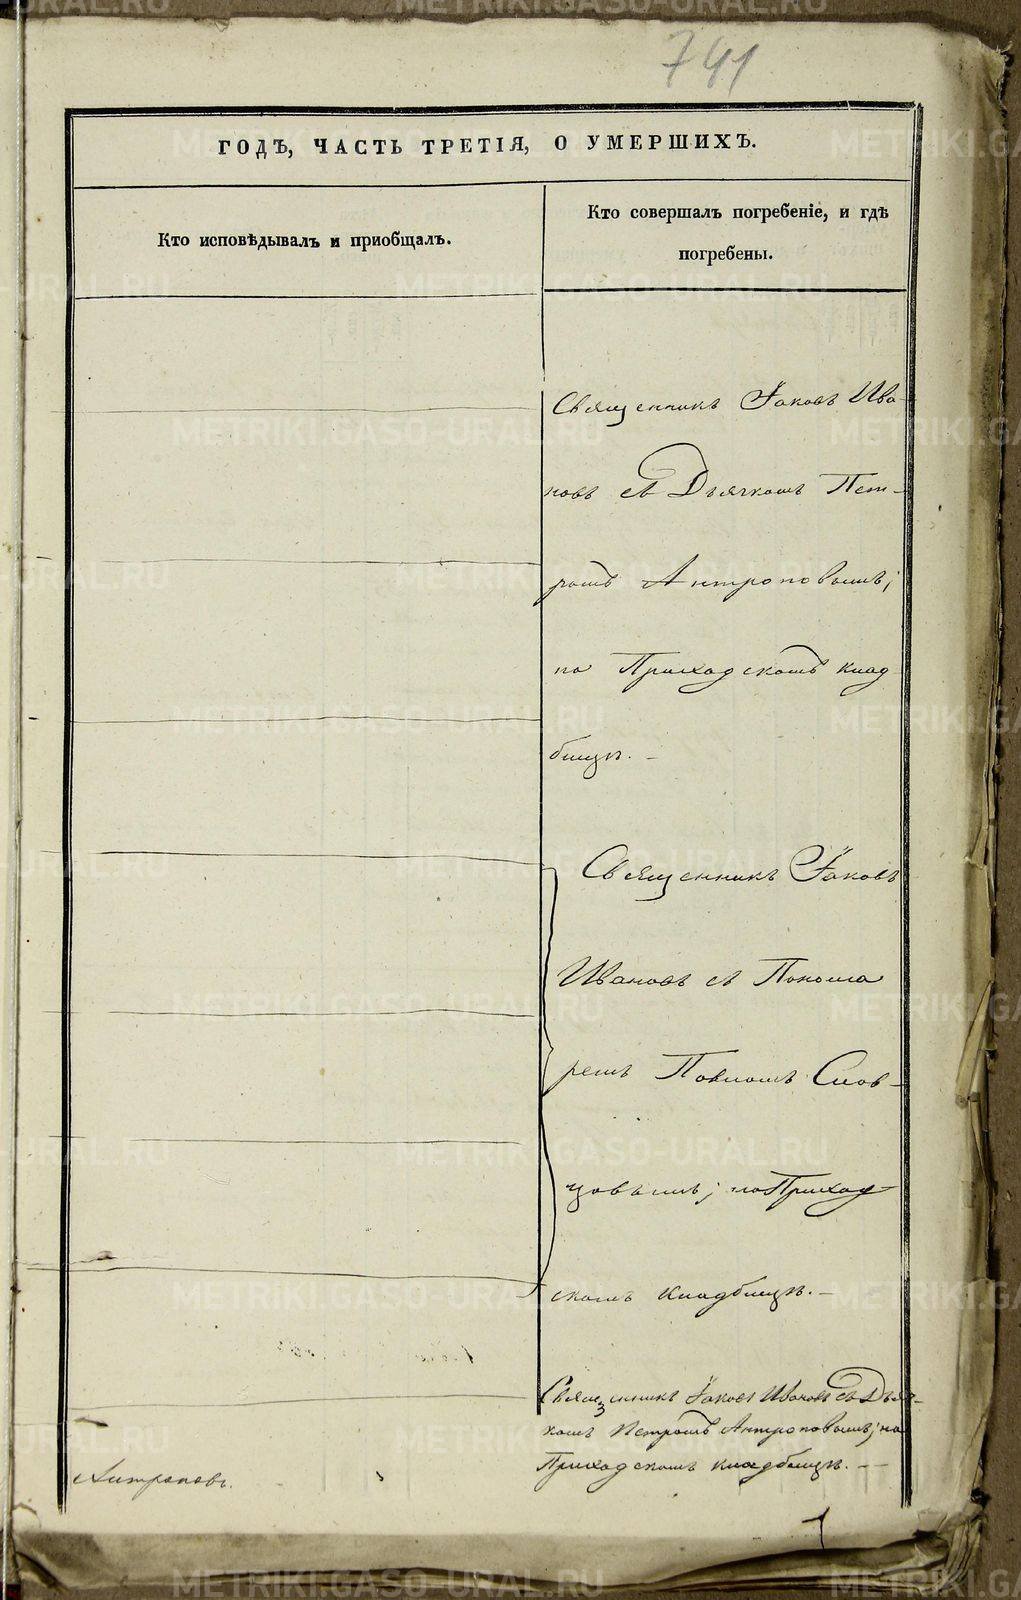 741
ГОДЪ, ЧАСТЬ ТРЕТІЯ, О УМЕРШИХЪ.
Кто исповѣдывалъ и пріобщалъ.
Кто совершалъ погребеніе, и гдѣ
погребены.
Священникъ Іаковъ Ива-
новъ съ Дьячкомъ Пет-
ромъ Антроповымъ;
на Приходскомъ клад
бищѣ. —
Священникъ Іаковъ
Ивановъ съ Понома
ремъ Павломъ Слов-
цовымъ; на Приход-
скомъ кладбищѣ. —
Священникъ Іаковъ Ивановъ съ Дьяч-
комъ Петромъ Антроповымъ; на
Приходскомъ кладбищѣ. —
Антроповъ.
METRIKI.GASO-URAL.RU